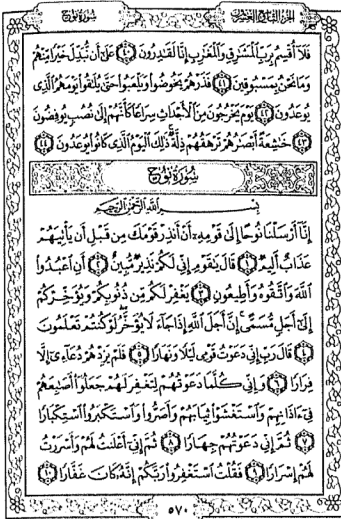 سُورَةُ نُوحٍ
الجزء التاسع والعشرون
فَلَآ أُقْسِمُ بِرَبِّ ٱلْمَشَٰرِقِ وَٱلْمَغَٰرِبِ إِنَّا لَقَٰدِرُونَ ٤٠ عَلَىٰٓ أَن نُّبَدِّلَ خَيْرًا مِّنْهُمْ
وَمَا نَحْنُ بِمَسْبُوقِينَ ٤١ فَذَرْهُمْ يَخُوضُوا۟ وَيَلْعَبُوا۟ حَتَّىٰ يُلَٰقُوا۟ يَوْمَهُمُ ٱلَّذِى
يُوعَدُونَ ٤٢ يَوْمَ يَخْرُجُونَ مِنَ ٱلْأَجْدَاثِ سِرَاعًا كَأَنَّهُمْ إِلَىٰ نُصُبٍ يُوفِضُونَ
٤٣ خَٰشِعَةً أَبْصَٰرُهُمْ تَرْهَقُهُمْ ذِلَّةٌ ذَٰلِكَ ٱلْيَوْمُ ٱلَّذِى كَانُوا۟ يُوعَدُونَ ٤٤
سُورَةُ نُوحٍ
بِسْمِ ٱللَّهِ ٱلرَّحْمَٰنِ ٱلرَّحِيمِ
إِنَّآ أَرْسَلْنَا نُوحًا إِلَىٰ قَوْمِهِۦٓ أَنْ أَنذِرْ قَوْمَكَ مِن قَبْلِ أَن يَأْتِيَهُمْ
عَذَابٌ أَلِيمٌ ١ قَالَ يَٰقَوْمِ إِنِّى لَكُمْ نَذِيرٌ مُّبِينٌ ٢ أَنِ ٱعْبُدُوا۟
ٱللَّهَ وَٱتَّقُوهُ وَأَطِيعُونِ ٣ يَغْفِرْ لَكُم مِّن ذُنُوبِكُمْ وَيُؤَخِّرْكُمْ
إِلَىٰٓ أَجَلٍ مُّسَمًّى إِنَّ أَجَلَ ٱللَّهِ إِذَا جَآءَ لَا يُؤَخَّرُ لَوْ كُنتُمْ تَعْلَمُونَ
٤ قَالَ رَبِّ إِنِّى دَعَوْتُ قَوْمِى لَيْلًا وَنَهَارًا ٥ فَلَمْ يَزِدْهُمْ دُعَآءِىٓ إِلَّا
فِرَارًا ٦ وَإِنِّى كُلَّمَا دَعَوْتُهُمْ لِتَغْفِرَ لَهُمْ جَعَلُوٓا۟ أَصَٰبِعَهُمْ
فِىٓ ءَاذَانِهِمْ وَٱسْتَغْشَوْا۟ ثِيَابَهُمْ وَأَصَرُّوا۟ وَٱسْتَكْبَرُوا۟ ٱسْتِكْبَارًا
٧ ثُمَّ إِنِّى دَعَوْتُهُمْ جِهَارًا ٨ ثُمَّ إِنِّىٓ أَعْلَنتُ لَهُمْ وَأَسْرَرْتُ
لَهُمْ إِسْرَارًا ٩ فَقُلْتُ ٱسْتَغْفِرُوا۟ رَبَّكُمْ إِنَّهُۥ كَانَ غَفَّارًا ١٠
٥٧٠